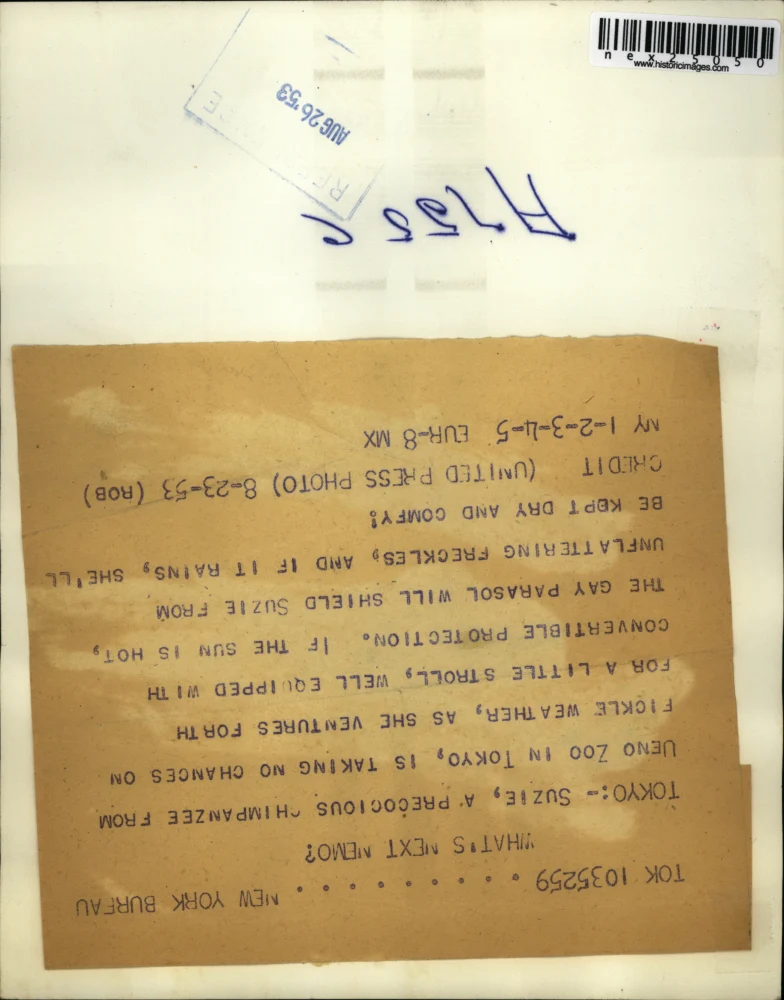 nex25050
www.historicimages.com
AUG 26 '53
TOK 1035259 . . . . . . . . NEW YORK BUREAU
WHAT'S NEXT MEMO?
TOKYO:- SUZIE, A PRECOCIOUS CHIMPANZEE FROM
UENO ZOO IN TOKYO, IS TAKING NO CHANCES ON
FICKLE WEATHER, AS SHE VENTURES FORTH
FOR A LITTLE STROLL, WELL EQUIPPED WITH
CONVERTIBLE PROTECTION. IF THE SUN IS HOT,
THE GAY PARASOL WILL SHIELD SUZIE FROM
UNFLATTERING FRECKLES, AND IF IT RAINS, SHE'LL
BE KEPT DRY AND COMFY!
CREDIT (UNITED PRESS PHOTO) 8-23-53 (ROB)
NY 1-2-3-4-5 EUR-8 MX